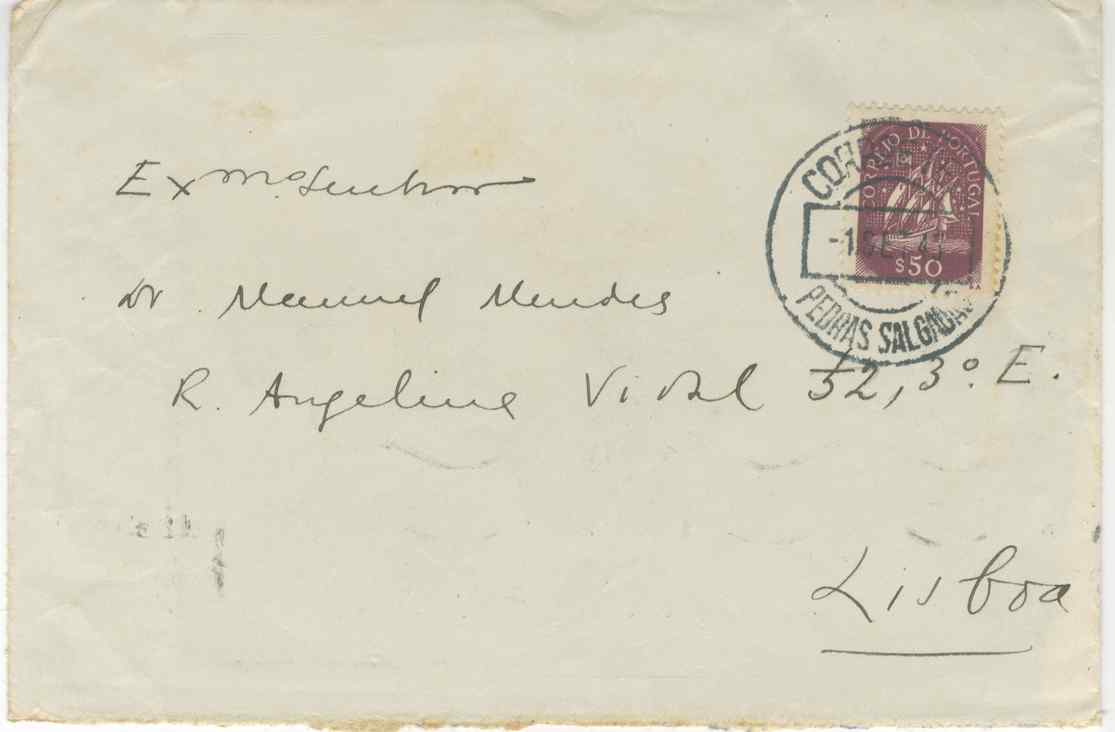 CORREIO DE PORTUGAL
$50
CORREIOS
PEDRAS SALGADAS
Exmo Senhor
Dr Manuel Mendes
R. Angelina Vidal 52, 3º. E.
Lisboa